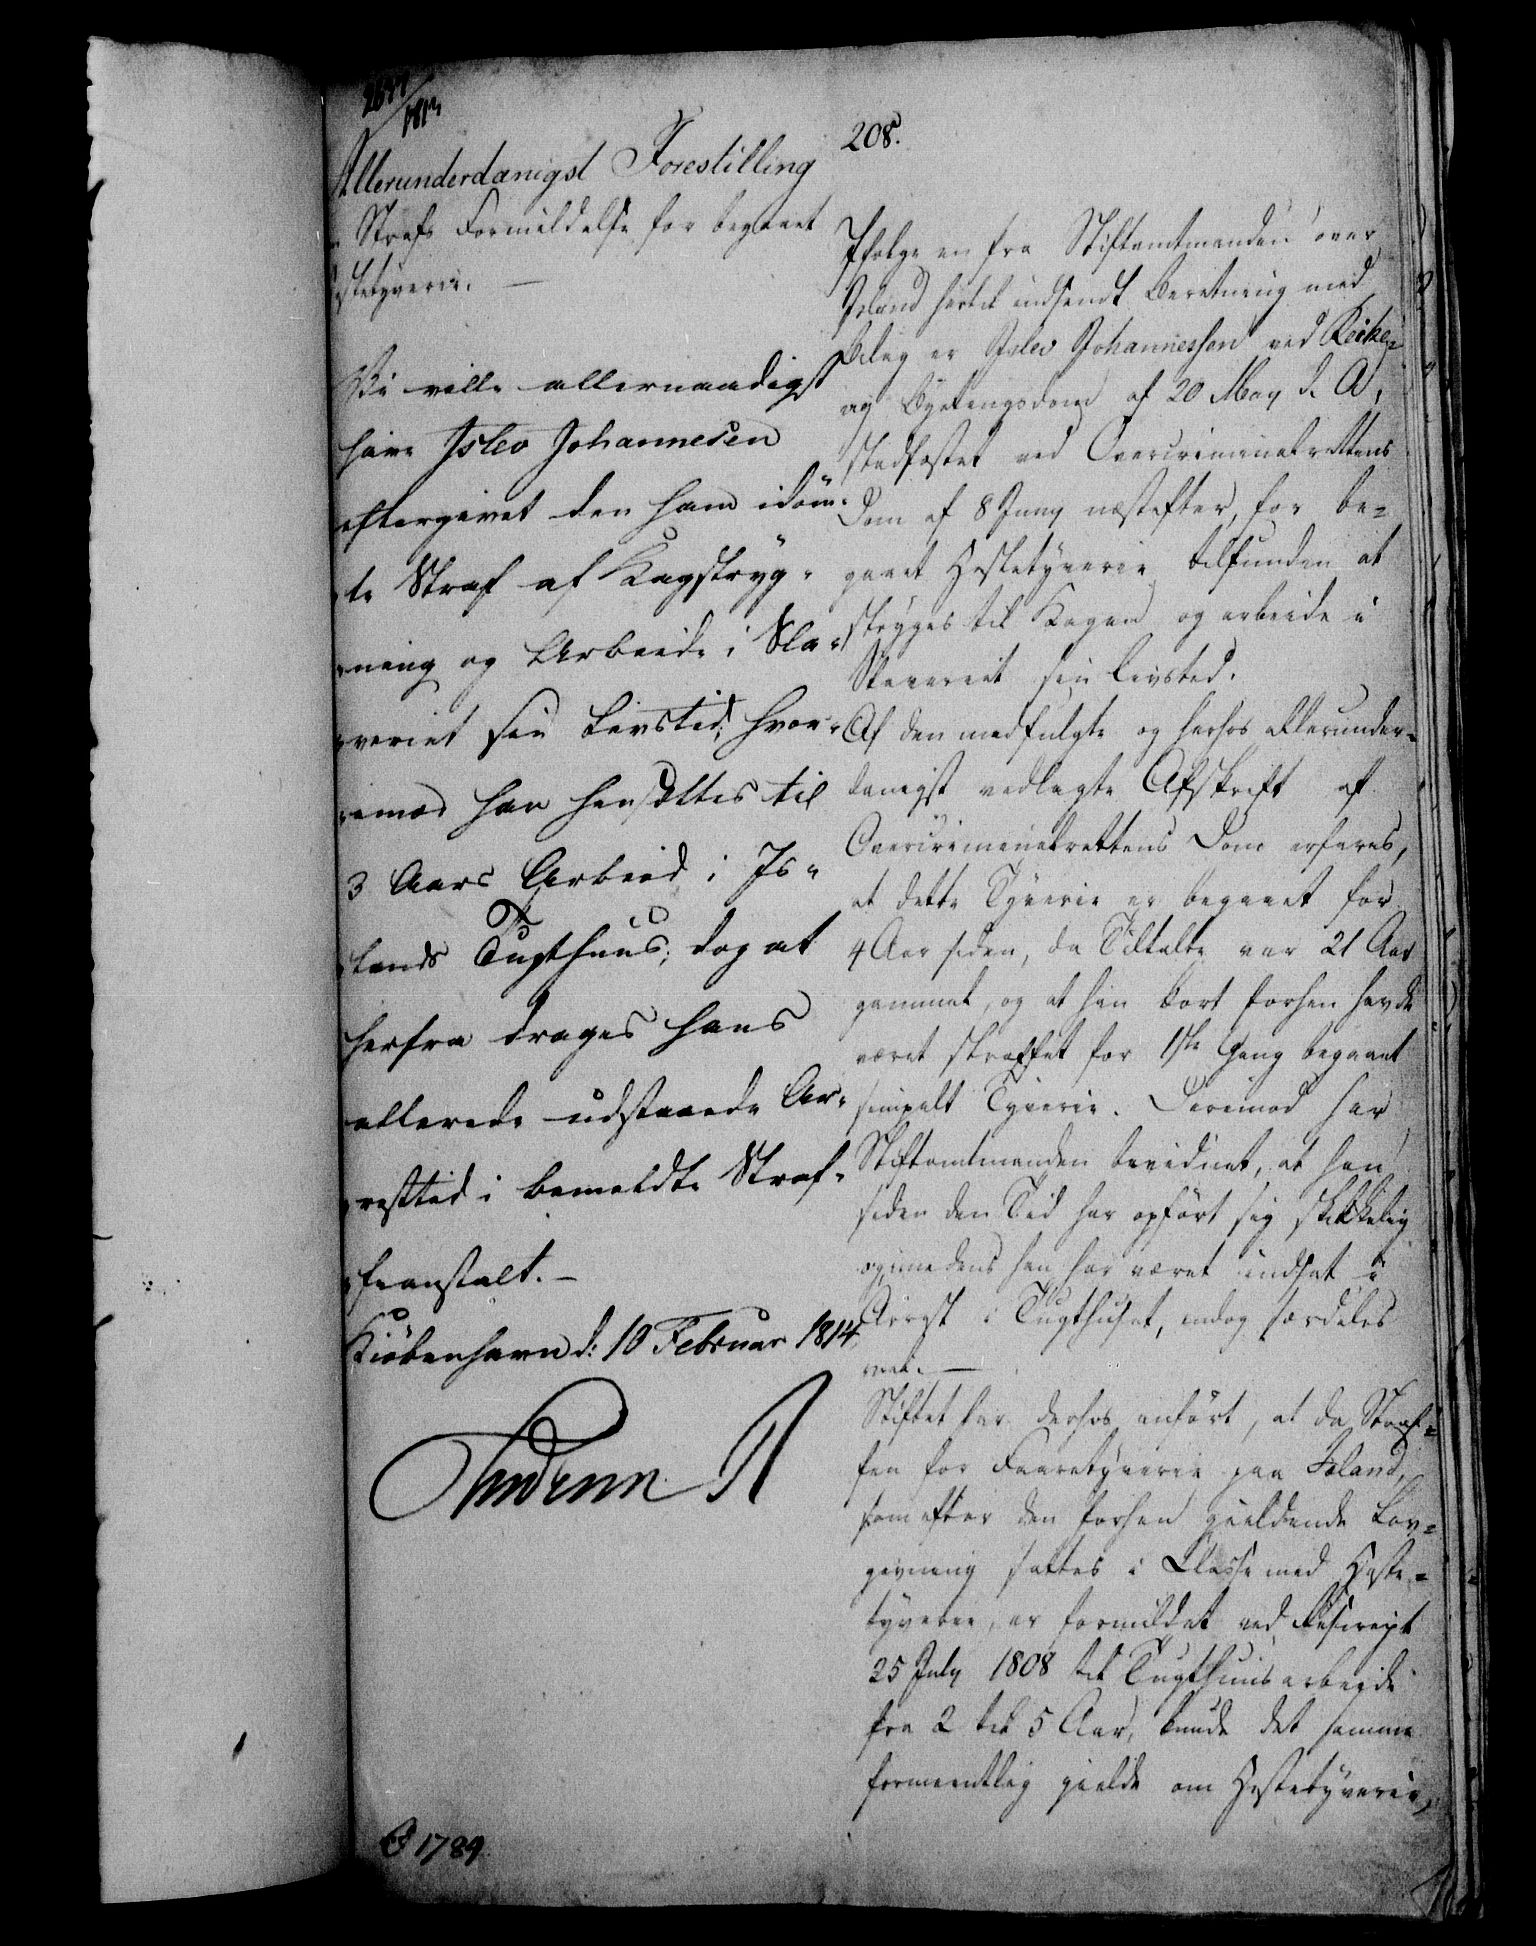 1813
Allerunderdanigst Forestilling
Strafs Formildelse for begaaet
Hestetyverie. —
Vi ville allernaadigst
have Islev Johannesen
eftergivet den ham idöm-
te Straf af Kagstryg-
ning og Arbeide i Sla-
veriet sin Livstid; hvor-
imod han hensættes til
3 Aars Arbeid i Is-
lands Tugthuus; dog at
herfra drages hans
allerede udstaaede Ar-
resttid i bemeldte Straf-
feanstalt. —
Kiöbenhavn d: 10 Februar 1814
Frederik R
1789
208.
Ifølge en fra Stiftamtmanden over
Island hertil indsendt Beretning med
Bilag er Islev Johannessen ved Reike-
vig Byetingsdom af 20 May d. A.,
stadfæstet ved Overcriminalrettens
Dom af 8 Juny næstefter, for be-
gaaet Hestetyverie tilfunden at
stryges til Kagen og arbeide i
Slaveriet sin Livstid.
Af den medfulgte og herhos allerunder-
danigst vedlagte Afskrift af
Overcriminalrettens Dom erfares,
at dette Tyverie er begaaet for
4 Aar siden, da Tiltalte var 21 Aar
gammel, og at han kort forhen havde
været straffet for 1ste Gang begaaet
simpelt Tyverie. Derimod har
Stiftamtmanden bevidnet, at han
siden den Tid har opfört sig skikkelig
og, imedens han har været indsat i
Arrest i Tugthuset, endog særdeles
vel. —
Stiftet har derhos anfört, at da Straf-
fen for Faaretyverie paa Island,
som efter den forhen gieldende Lov-
givning sattes i Classe med Heste-
tyverie, er formildet ved Rescript
25 July 1808 til Tugthuusarbeide
fra 2 til 5 Aar, burde det samme
formeentlig gielde om Hestetyverie,